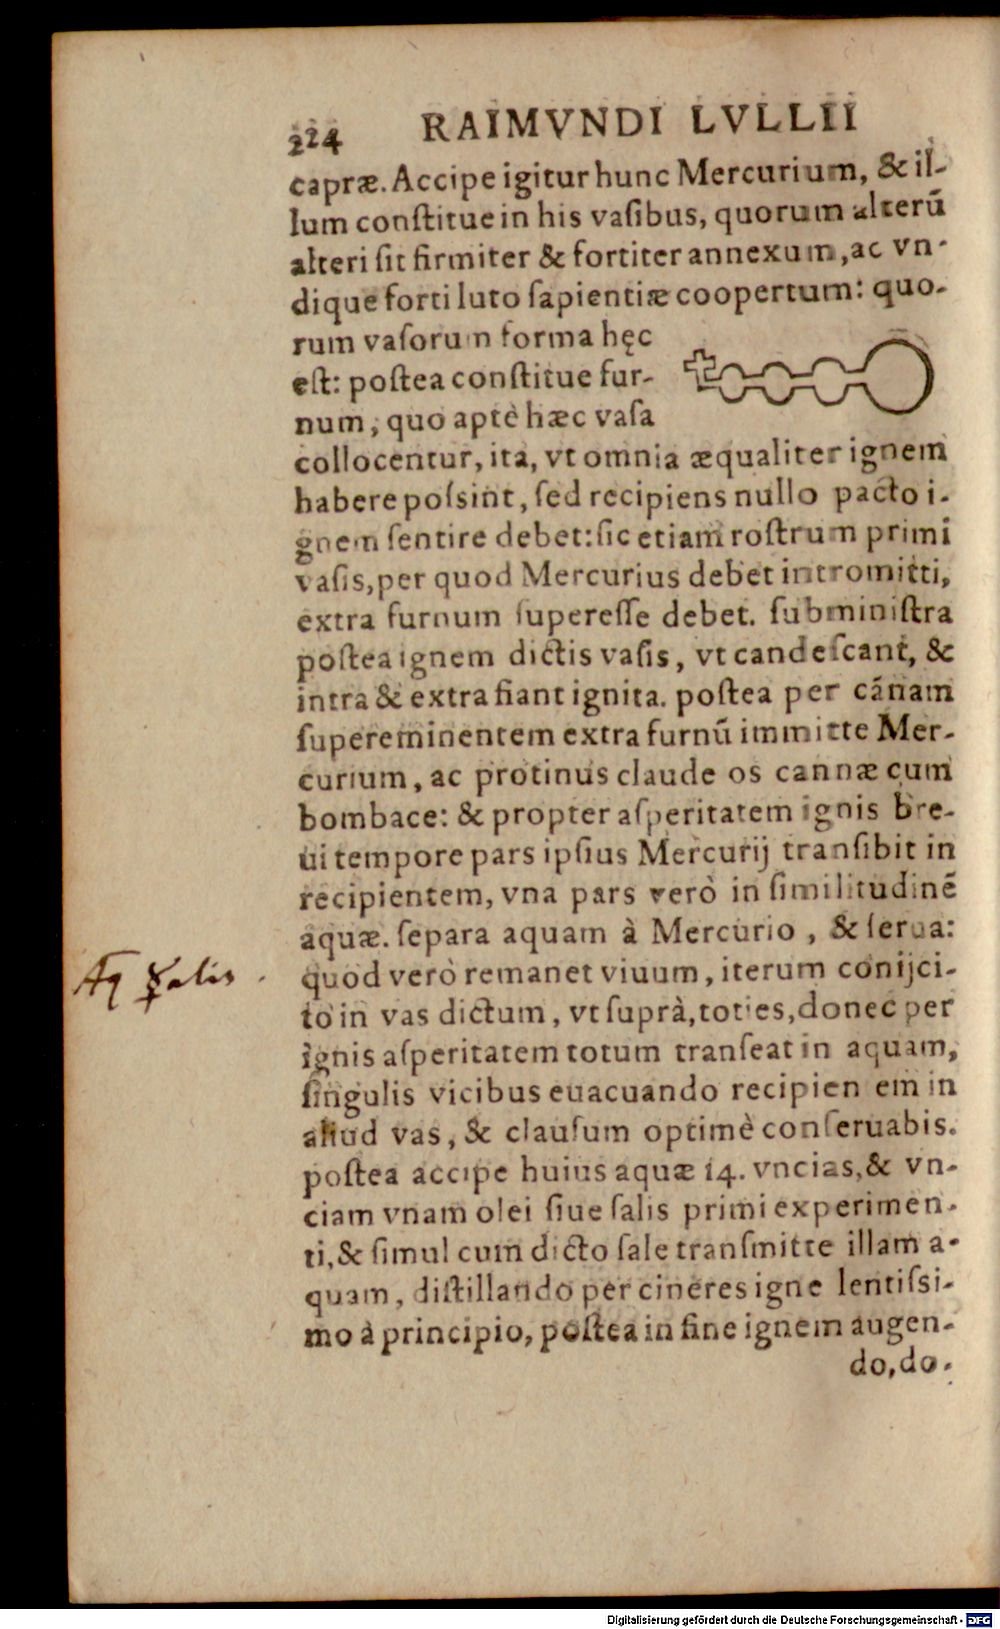 224 RAIMVNDI LVLLII
capræ. Accipe igitur hunc Mercurium, & il-
lum conſtitue in his vaſibus, quorum alterũ
alteri ſit firmiter & fortiter annexum, ac vn-
dique forti luto ſapientiæ coopertum: quo-
rum vaſorum forma hęc
eſt: poſtea conſtitue fur-
num, quo aptè hæc vaſa
collocentur, ita, vt omnia æqualiter ignem
habere poſsint, ſed recipiens nullo pacto i-
gnem ſentire debet: ſic etiam roſtrum primi
vaſis, per quod Mercurius debet intromitti,
extra furnum ſupereſſe debet. ſubminiſtra
poſtea ignem dictis vaſis, vt candeſcant, &
intra & extra fiant ignita. poſtea per cãnam
ſupereminentem extra furnũ immitte Mer-
curium, ac protinus claude os cannæ cum
bombace: & propter aſperitatem ignis bre-
ui tempore pars ipſius Mercurij tranſibit in
recipientem, vna pars verò in ſimilitudinẽ
aquæ. ſepara aquam à Mercurio, & ſerua:
quod verò remanet viuum, iterum conijci-
to in vas dictum, vt ſuprà, toties, donec per
ignis aſperitatem totum tranſeat in aquam,
ſingulis vicibus euacuando recipien em in
aliud vas, & clauſum optimè conſeruabis.
poſtea accipe huius aquæ 14. vncias, & vn-
ciam vnam olei ſiue ſalis primi experimen-
ti, & ſimul cum dicto ſale tranſmitte illam a-
quam, diſtillando per cineres igne lentiſsi-
mo à principio, poſtea in fine ignem augen-
do, do-
Aq ☿alis
Digitalisierung gefördert durch die Deutsche Forschungsgemeinschaft - DFG